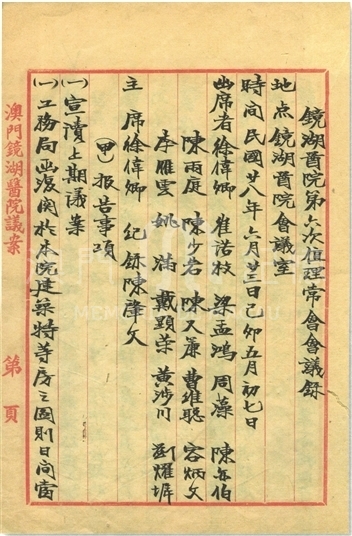 鏡湖醫院第六次值理常會會議錄
地点鏡湖醫院會議室
時间民國廿八年六月廿三日己卯五月初七日
出席者徐偉卿 崔諾枝 梁孟鴻 周藻 陳亦伯
陳雨庭 陳少若 陳又廉 曹維聪 容炳文
李雁雲 姚滿 戴顕荣 黄涉川 劉耀墀
主席徐偉卿 纪録陳肇文
甲 报告事項
(一)宣讀上期議案
(一)工務局函覆関於本院建築特等房之圖則日间當
澳門鏡湖醫院議案 第 頁